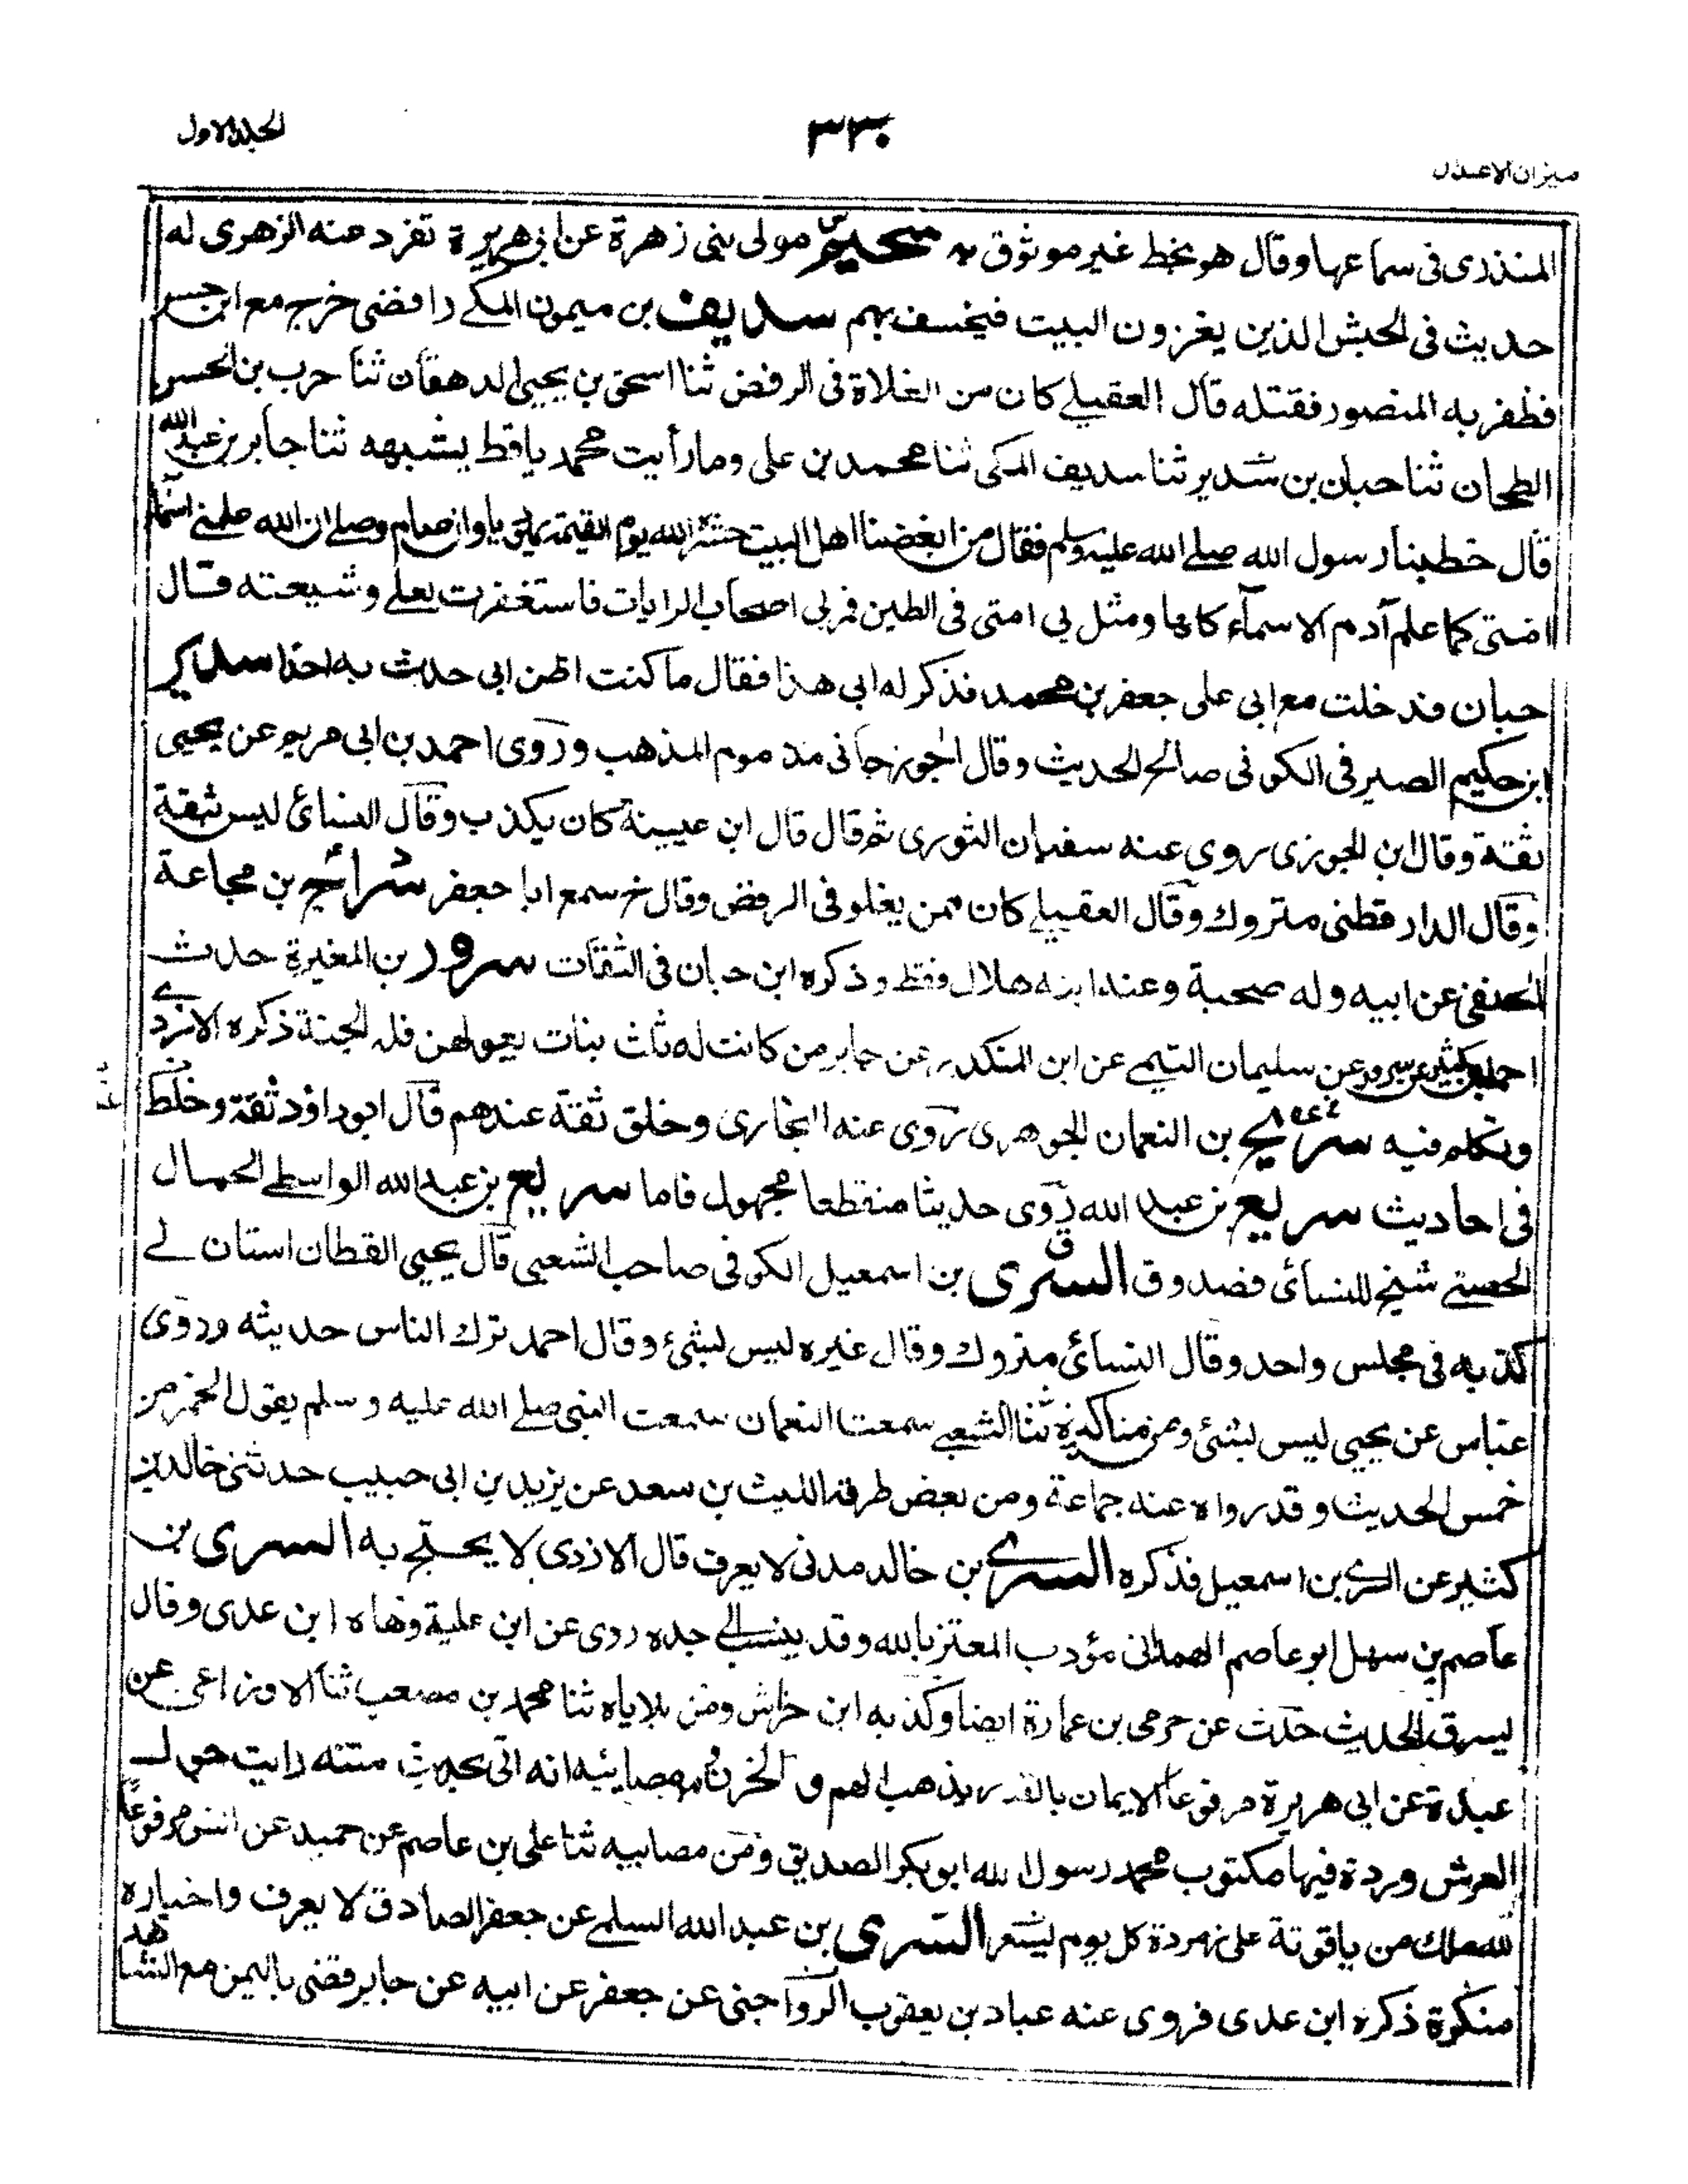 الجلد الاول
٣٣٠
ميزان الاعتدال
المنذرى فى سماعها وقال هو بخط غير موثوق به سحيم مولى بنى زهرة عن ابى هريرة تفرد عنه الزهرى له
حديث فى الحبش الذين يغزون البيت فيخسف بهم سديف بن ميمون المكے رافضى خرج مع ابن حسن
فظفر به المنصور فقتله قال العقيلے كان من الغلاة فى الرفض ثنا اسحق بن يحيى الدهقان ثنا حرب بن الحسن
الطحان ثنا حبان بن سدير ثنا سديف المكى ثنا محمد بن على وما رأيت محمديا قط يشبهه ثنا جابر بن عبد الله
قال خطبنا رسول الله صلے الله عليه وسلم فقال من ابغضنا اهل البيت حشره الله يوم القيمة يهوديا وان صام وصلے ان الله علمنے اسماء
امتى كما علم آدم الاسماء كلها ومثل لى امتى فى الطين فمر بى اصحاب الرايات فاستغفرت لعلے وشيعته قال
حبان فدخلت مع ابى على جعفر بن محمد فذكر له ابى هذا فقال ما كنت اظن ابى حدث به احدا سدير
ابن حكيم الصيرفى الكوفى صالح الحديث وقال الجوزجانى مذموم المذهب وروى احمد بن ابى مريم عن يحيى
ثقة وقال ابن الجوزى روى عنه سفيان الثورى ثم قال قال ابن عيينة كان يكذب وقال النسائ ليس بثقة
وقال الدارقطنى متروك وقال العقيلے كان ممن يغلو فى الرفض وقال خ سمع ابا جعفر سراج بن مجاعة
الحنفى عن ابيه وله صحبة وعند ابنه هلال فقط وذكره ابن حبان فى الثقات سرور بن المغيرة حدث
احمد بن كثير عن سرور عن سليمان التيمے عن ابن المنكدر عن جابر من كانت له ثلث بنات يعولهن فله الجنة ذكره الازدے
وتكلم فيه سريج بن النعمان الجوهرى روى عنه البخارى وخلق ثقة عندهم قال ابو داؤد ثقة وغلط
فى احاديث سريع بن عبد الله روى حديثا منقطعا مجهول فاما سريع بن عبد الله الواسطے الجمال
الخصے شيخ للنسائى فصدوق السرى بن اسمعيل الكوفى صاحب الشعبى قال يحيى القطان استبان لے
كذبه فى مجلس واحد وقال النسائى متروك وقال غيره ليس بشئ وقال احمد ترك الناس حديثه وروى
عباس عن يحيى ليس بشئ ومن مناكيره ثنا الشعبے سمعت النعمان سمعت النبى صلے الله عليه وسلم يقول الخمر من
خمس الحديث وقد رواه عنه جماعة ومن بعض طرقه الليث بن سعد عن يزيد بن ابى حبيب حدثنى خالد بن
كثير عن السرى بن اسمعيل فذكره السرے بن خالد مدنى لا يعرف قال الازدى لا يحتج به السرى بن
عاصم بن سهل ابو عاصم الهمدانى مؤدب المعتز بالله وقد ينسب الے جده روى عن ابن علية وهاه ابن عدى وقال
يسرق الحديث حدث عن حرمى بن عمارة ايضا وكذبه ابن خراش ومن بلاياه ثنا محمد بن مصعب ثنا الاوزاعى عن
عبدة عن ابى هريرة مرفوعا الايمان بالقدر يذهب الهم و الحزن ومن مصائبه انه اتى بحديث متنه رايت حول
العرش وردة فيها مكتوب محمد رسول الله ابو بكر الصديق ومن مصايبه ثنا على بن عاصم عن حميد عن انس مرفوعا
لله ملك من ياقوتة على زمردة كل يوم ليسعر السرى بن عبد الله السلمے عن جعفر الصادق لا يعرف واخباره
منكرة ذكره ابن عدى فروى عنه عباد بن يعقوب الرواجنى عن جعفر عن ابيه عن جابر قضى باليمن مع الشاهد